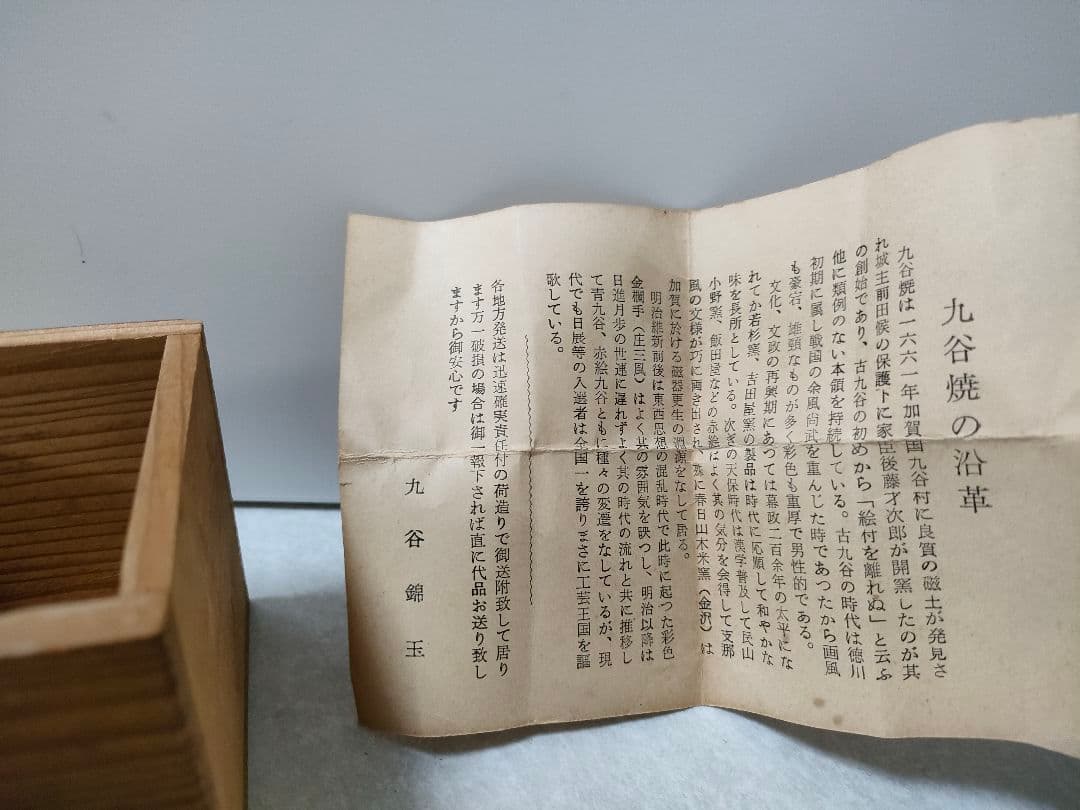 九谷焼の沿革
九谷焼は一六六一年加賀国九谷村に良質の磁土が発見さ
れ城主前田候の保護下に家臣後藤才次郎が開窯したのが其
の創始であり、古九谷の初めから「絵付を離れぬ」と云ふ
他に類例のない本領を持続している。古九谷の時代は徳川
初期に属し戦国の余風尚武を重んじた時であつたから画風
も豪宕、雄頸なものが多く彩色も重厚で男性的である。
文化、文政の再興期にあつては幕政二百余年の太平にな
れてか若杉窯、吉田屋窯の製品は時代に応願して和やかな
味を長所としている。次ぎの天保時代は漢学普及して民山
小野窯、飯田屋などの赤絵はよく其の気分を会得して支那
風の文様が巧に画き出され、殊に春日山木米窯(金沢)は
加賀に於ける磁器更生の淵源をなして居る。
明治維新前後は東西思想の混乱時代で此時に起つた彩色
金襴手(庄三風)はよく其の雰囲気を映つし、明治以降は
日進月歩の世運に遅れずよく其の時代の流れと共に推移し
て青九谷、赤絵九谷ともに種々の変遷をなしているが、現
代でも日展等の入選者は全国一を誇りまさに工芸王国を謳
歌している。
各地方発送は迅速確実責任付の荷造りで御送附致して居り
ます万一破損の場合は御一報下されば直に代品お送り致し
ますから御安心です
九谷錦玉